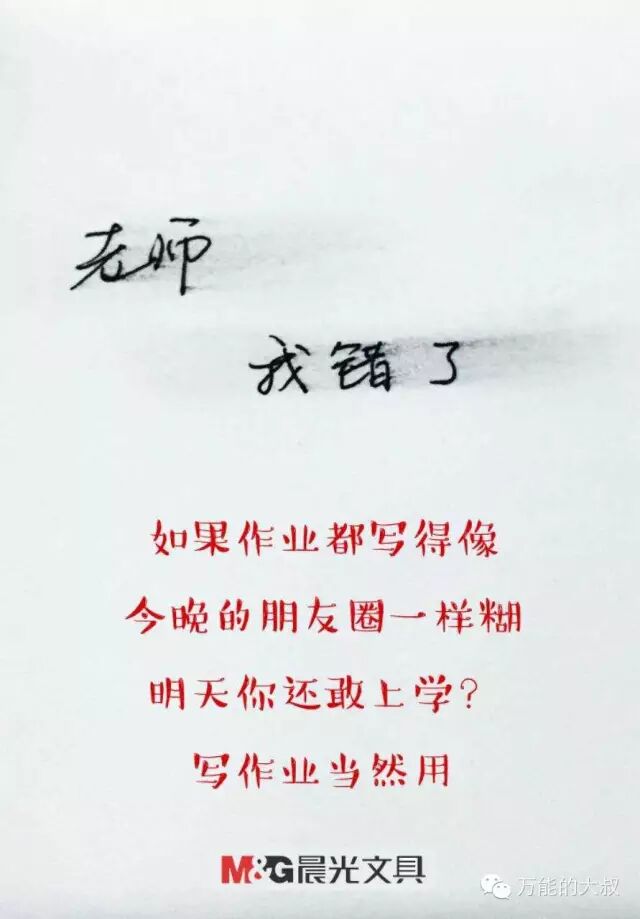 老师
我错了
如果作业都写得像
今晚的朋友圈一样糊
明天你还敢上学？
写作业当然用
M&G晨光文具
万能的大叔